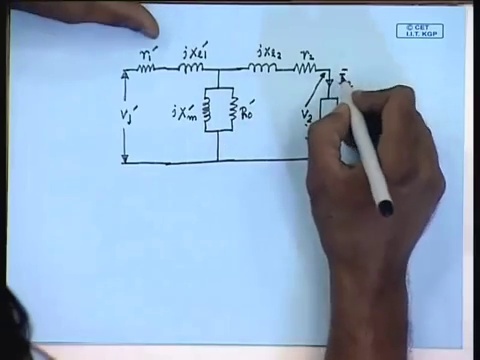 © CET
I.I.T. KGP
r₁′ jxₗ₁′ jxₗ₂ r₂ Ī
V₁′ jXₘ′ R₀′ V₂